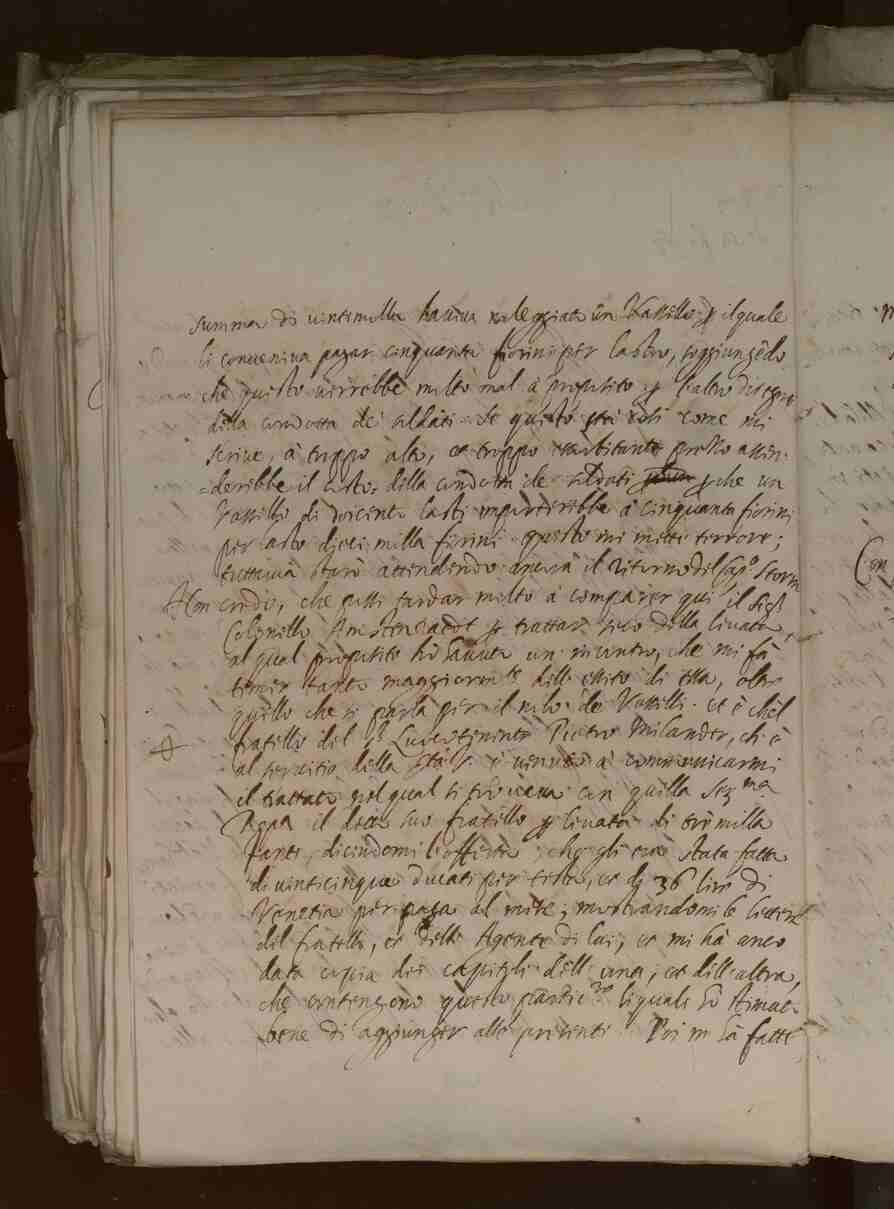 summa di vintimilla haveva noleggiato un Vassello p il quale
li conveniva pagar cinquanta fiorini per lasto, soggiungẽdo
che questo verrebbe molto mal à proposito p l'altro disegno
della condotta de' soldati. Se questo stà così come mi
scrive, à troppo alto, et troppo essorbitante prezzo assen-
derebbe il costo della condotta de soldati p che un
Vassello di doicento lasti importerebbe à cinquanta fiorini
per lasto dieci milla fiorini questo mi mette terrore;
tuttavia starò attendendo ancora il ritorno del Capº Storm
Non credo, che possi tardar molto à comparer qui il Sigʳ
Colonello p trattar seco della levata,
al qual proposito hò havuto un incontro, che mi fà
temer tanto maggiormᵗᵉ dell'essito di essa, oltre
quello che si parla per il nolo de Vasselli. et è ch'el
fratello del Sʳ Luocotenente Pietro Milander, ch'è
al servitio della è venuto à communicarmi
il trattato nel qual si trovava con quella Serᵐᵃ
Repᶜᵃ il detto suo fratello p levata di trè milla
fanti, dicendomi l'offerta, che gli era stata fatta
di vinticinque ducati per testa, et di 36 lire di
Venetia per paga al mese; mostrandomi le lettere
del fratello, et dello Agente di lui, et mi hà anco
dato copia dei capitoli dell'una, et dell'altra,
che contengono questo partic.ʳᵉ li quali hò stimato
bene di aggiunger alle presenti. Poi m'hà fatto